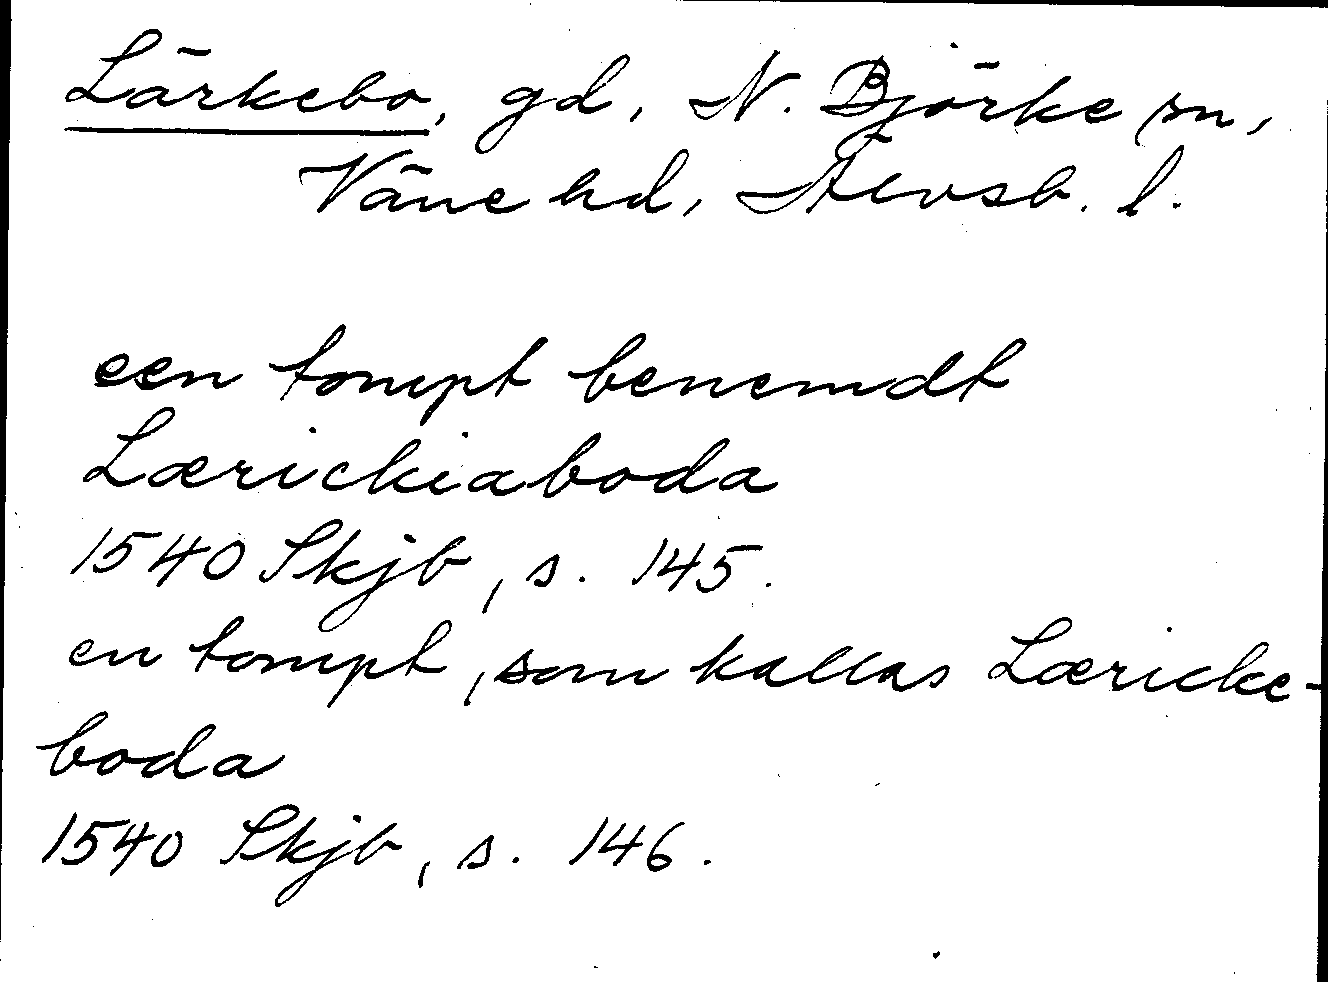 Lärkebo, gd, N. Björke sn,
Väne hd, Älvsb. l.
een tompt benemdt
Lærickiaboda
1540 Skjb, s. 145.
en tompt, som kallas Læricke-
boda
1540 Skjb, s. 146.